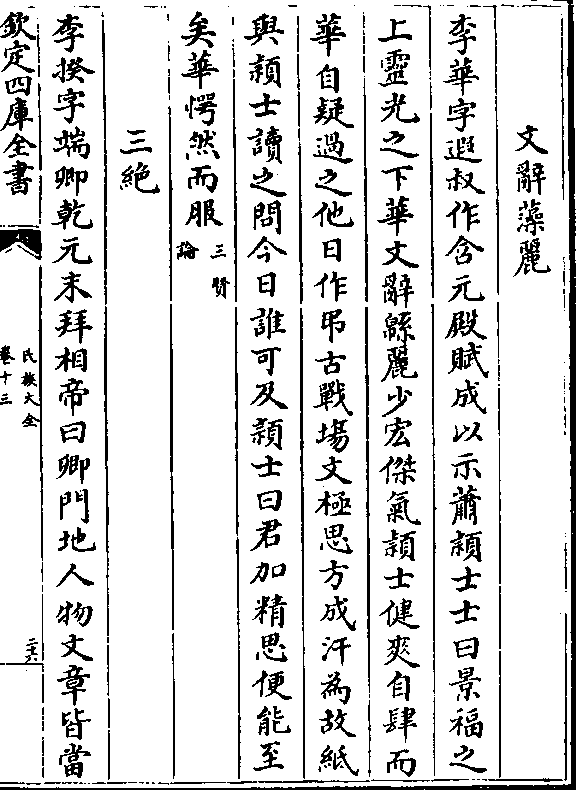 文辭藻麗
李華字遐叔作含元殿賦成以示蕭頴士士曰景福之
上靈光之下華文辭緜麗少宏傑氣頴士健爽自肆而
華自疑過之他日作弔古戰場文極思方成汙為故紙
與頴士讀之問今日誰可及頴士曰君加精思便能至
矣華愕然而服三賢論
三絶
李揆字端卿乾元末拜相帝曰卿門地人物文章皆當
欽定四庫全書
氏族大全
卷十三
二六